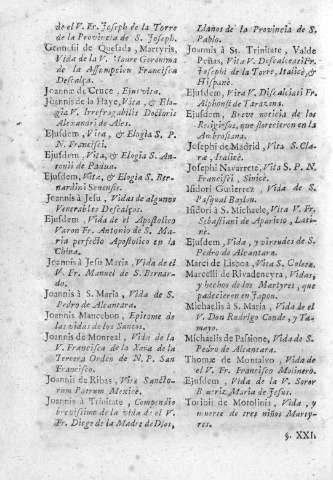 del V. Fr. Joseph de la Torre
de la Provincia de S. Joseph.
Gennesii de Quesada, Martyris,
Vida de la V. Madre Geronima
de la Assumpcion Francisca
Descalça.
Joannæ de Cruce, Ejus vita.
Joannis de la Haye, Vita, & Elogia
V. Irrefragabilis Doctoris
Alexandri de Ales.
Ejusdem, Vita, & Elogia S. P. N.
Francisci.
Ejusdem, Vita, & Elogia S. Antonii
de Padua.
Ejusdem, Vita, & Elogia S. Bernardini
Senensis.
Joannis à Jesu, Vidas de algunos
Venerables Descalços.
Ejusdem, Vida del Apostolico
Varon Fr. Antonio de S. Maria
perfecto Apostolico en la
China.
Joannis à Jesu Maria, Vida de el
V. Fr. Manuel de S. Bernardo.
Joannis à S. Maria, Vida de S.
Pedro de Alcantara.
Joannis Mancebon, Epitome de
las vidas de los Santos.
Joannis de Monreal, Vida de la
V. Francisca de la
Tercera Orden de N. P. San
Francisco.
Joannis de Ribas, Vita Sanctorum
Patrum Mexicè.
Joannis à Trinitate, Compendio
brevissimo de la vida de el V.
Fr. Diego de la Madre de Dios,
Llanos de la Provincia de S.
Pablo.
Joannis à SS. Trinitate, Valde
Peñas, Vita V. Descalceati Fr.
Josephi de la Torre, Italicè, &
Hispanè.
Ejusdem, Vita V. Discalciati Fr.
Alphonsi de Tarazona.
Ejusdem, Breve noticia de los
Religiosos, que florecieron en la
Ambrosiana.
Josephi de Madrid, Vita S. Claræ,
Italicè.
Josephi Navarrete, Vita S. P. N.
Francisci, Sinicè.
Isidori Gutierrez, Vida de S.
Pasqual Baylon.
Isidori à S. Michaele, Vita V. Fr.
Sebastiani de Aparicio, Latinè.
Ejusdem, Vida, y virtudes de S.
Pedro de Alcantara.
Marci de Lisboa, Vita S. Coletæ.
Marcelli de Rivadeneyra, Vidas,
y hechos de los Martyres, que
padecieron en Japon.
Michaelis à S. Maria, Vida de el
V. Don Rodrigo Conde, y Tamayo.
Michaelis de Passione, Vida de S.
Pedro de Alcantara.
Thomæ de Montalvo, Vida de
el V. Fr. Francisco Molinero.
Ejusdem, Vida de la V. Soror
Beatriz Maria de Jesus.
Toribii de Motolinia, Vida, y
muerte de tres niños Martyres.
§. XXI.